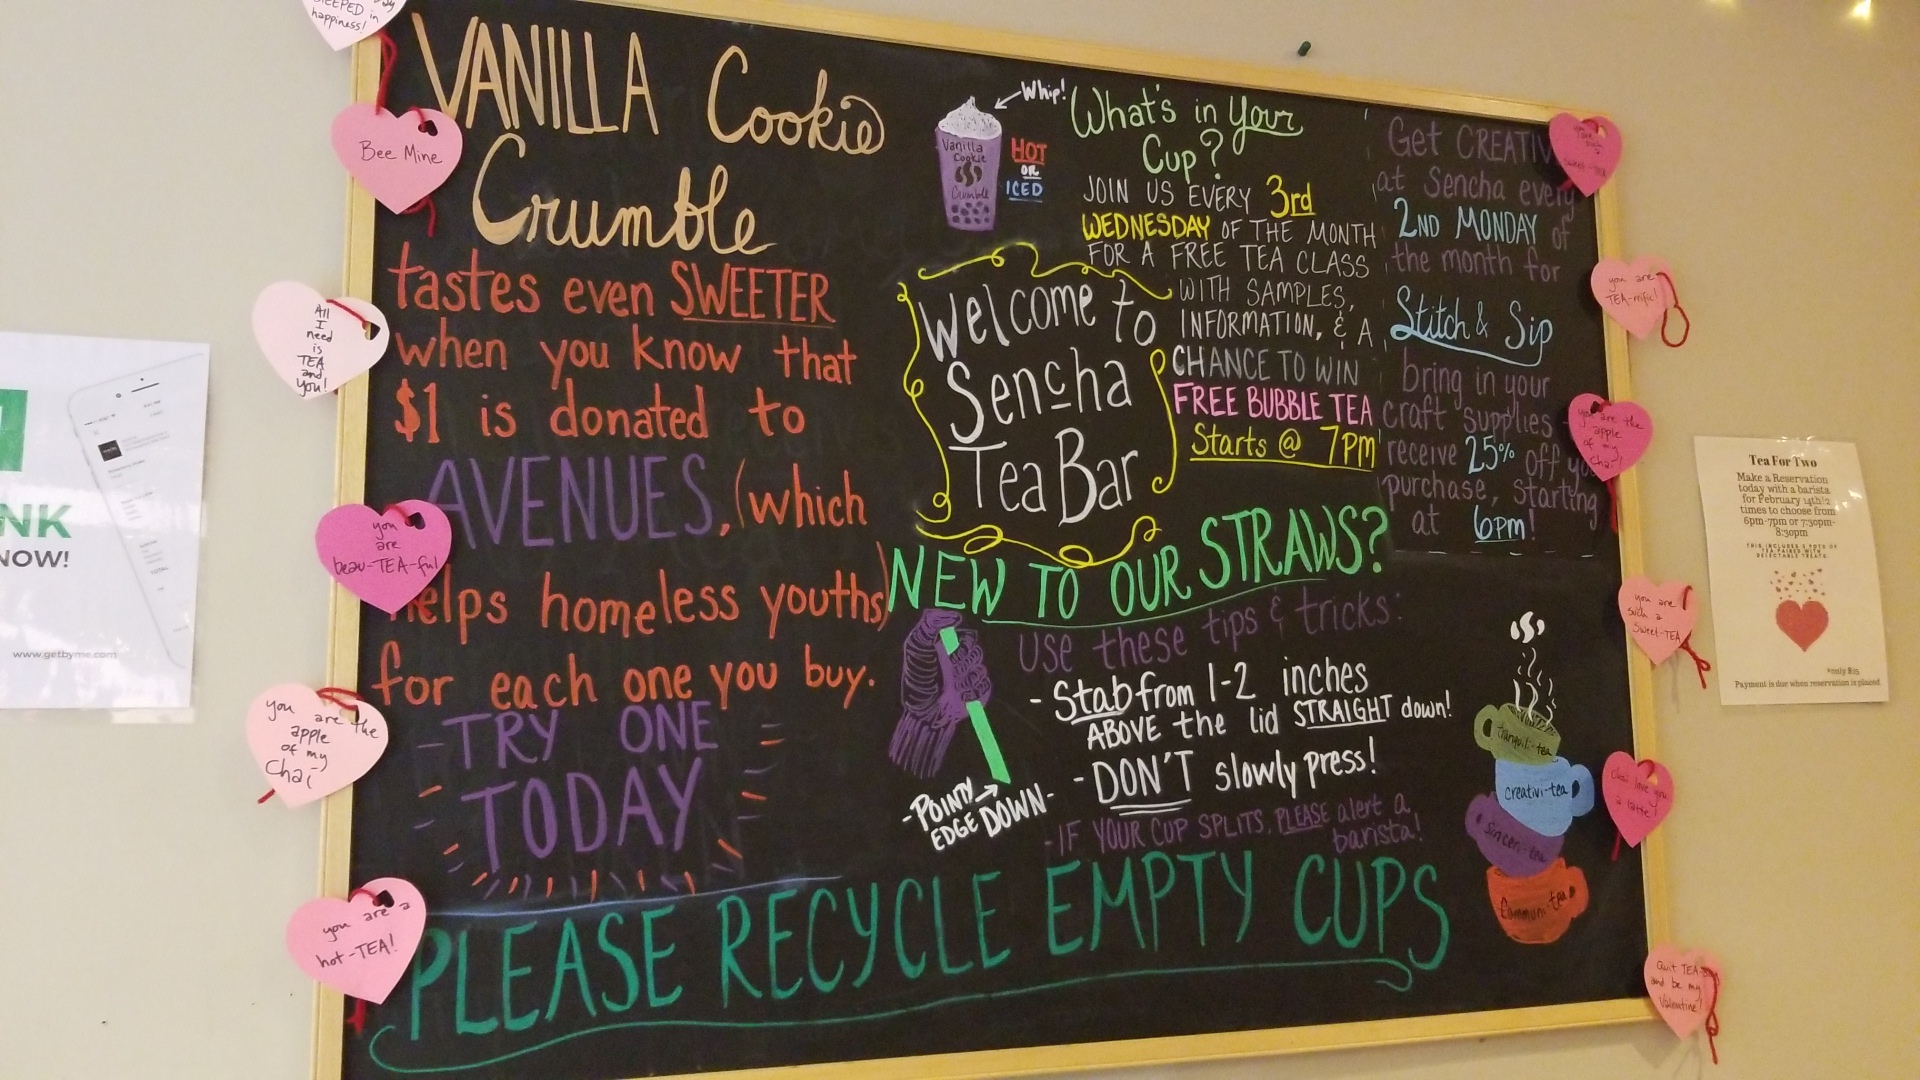 VANILLA Cookie
Crumble
tastes even SWEETER
when you know that
$1 is donated to
AVENUES, (which
helps homeless youths)
for each one you buy.
-TRY ONE
TODAY
Whip!
Vanilla
Cookie
Crumble
HOT
OR
ICED
What's in Your
Cup?
JOIN US EVERY 3rd
WEDNESDAY OF THE MONTH
FOR A FREE TEA CLASS
WITH SAMPLES,
INFORMATION, & A
CHANCE TO WIN
FREE BUBBLE TEA
Starts @ 7PM
Get CREATIV
at Sencha every
2ND MONDAY of
the month for
Stitch & Sip
bring in your
craft supplies -
receive 25% off yo
purchase, starting
at 6pm!
Welcome to
Sencha
Tea Bar
NEW TO OUR STRAWS?
use these tips & tricks:
- Stab from 1-2 inches
ABOVE the lid STRAIGHT down!
- DON'T slowly press!
- IF YOUR CUP SPLITS, PLEASE alert a
barista!
-POINTY
EDGE DOWN-
tranquil-tea
creativi-tea
sinceri-tea
Communi-tea
PLEASE RECYCLE EMPTY CUPS
STEEPED in
happiness!
Bee Mine
All
I
need
is
TEA
and
you!
you
are
beau-TEA-ful
you are the
apple
of my
Chai
you are a
hot-TEA!
sweet-tea
you are
TEA-rific!
you are the
apple
of my
Chai!
you are
such a
Sweet-TEA
Chai love you
a latte!
Quit TEA
and be my
Valentine!
NK
NOW!
www.getbyme.com
Tea For Two
Make a Reservation
today with a barista
for February 14th! 2
times to choose from
6pm-7pm or 7:30pm-
8:30pm
THIS INCLUDES 2 POTS OF
TEA PAIRED WITH
DELECTABLE TREATS.
*only $25
Payment is due when reservation is placed